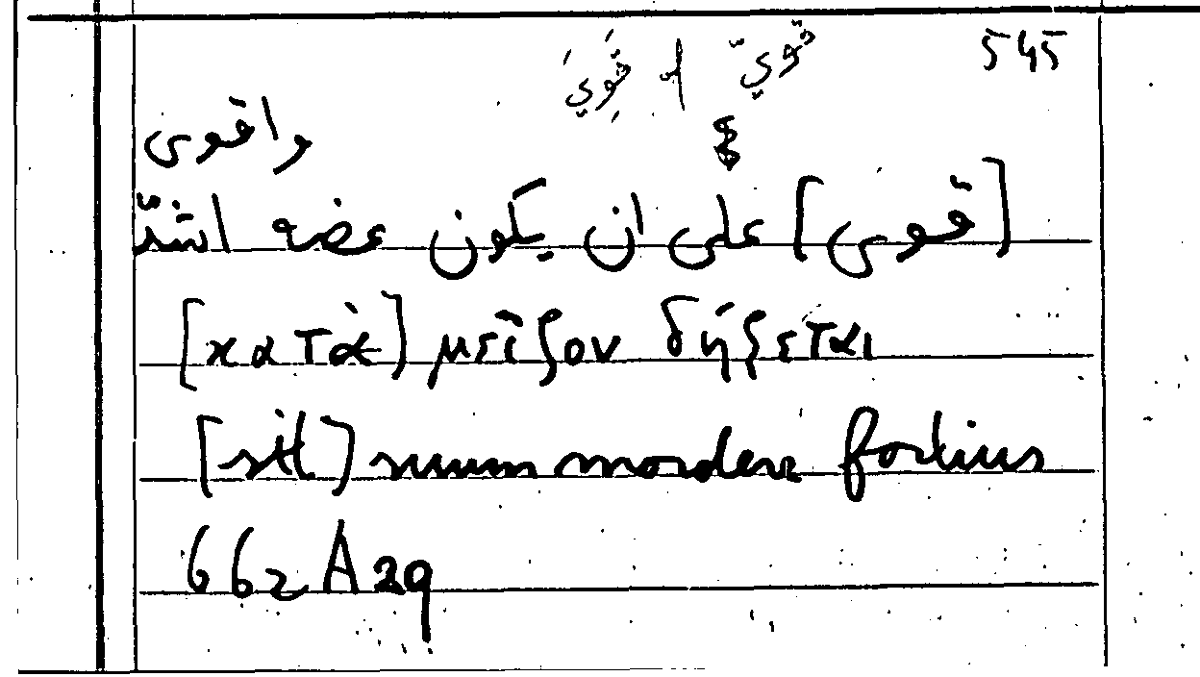 545
قويّ او قَوِيَ
واقوى
[قوى] على ان يكون عضه اشدّ
[κατὰ] μεῖζον δήξεται
[sit] suum mordere fortius
662 A 29